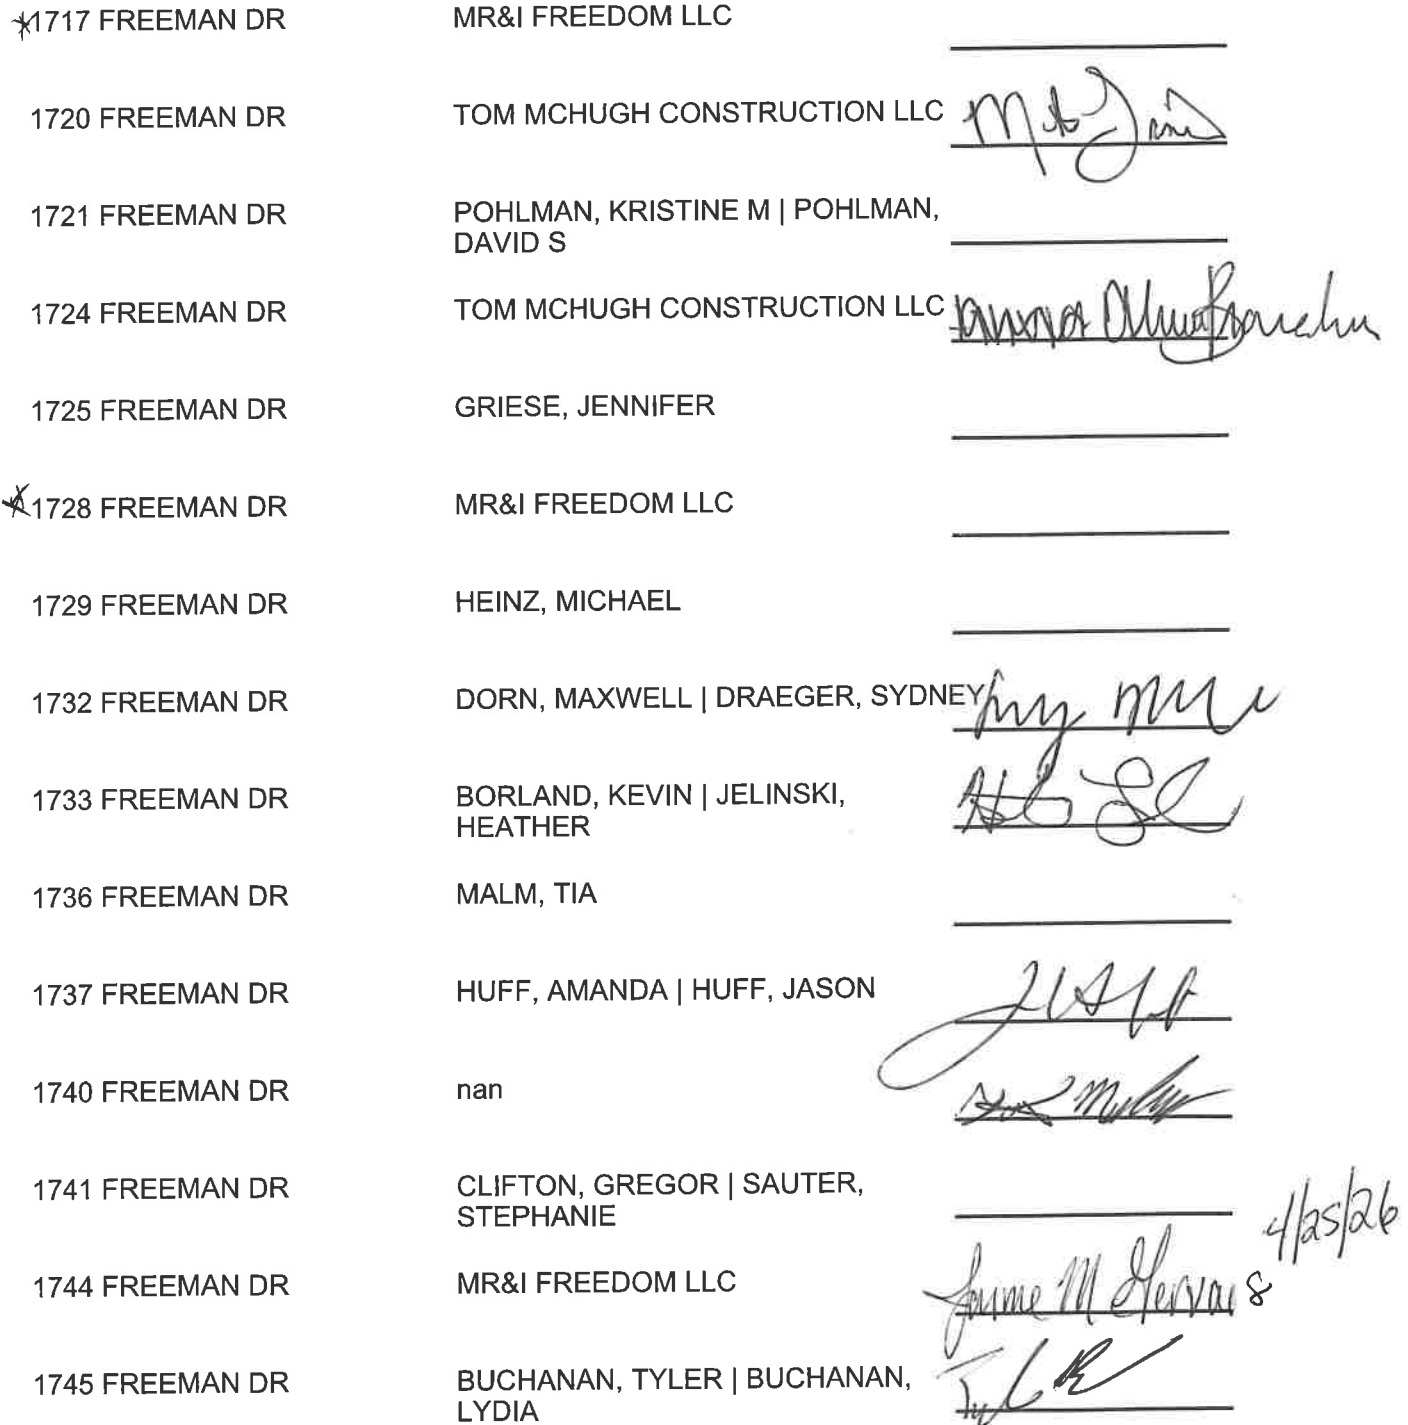 *1717 FREEMAN DR MR&I FREEDOM LLC
1720 FREEMAN DR TOM MCHUGH CONSTRUCTION LLC
1721 FREEMAN DR POHLMAN, KRISTINE M | POHLMAN,
DAVID S
1724 FREEMAN DR TOM MCHUGH CONSTRUCTION LLC
1725 FREEMAN DR GRIESE, JENNIFER
*1728 FREEMAN DR MR&I FREEDOM LLC
1729 FREEMAN DR HEINZ, MICHAEL
1732 FREEMAN DR DORN, MAXWELL | DRAEGER, SYDNEY
1733 FREEMAN DR BORLAND, KEVIN | JELINSKI,
HEATHER
1736 FREEMAN DR MALM, TIA
1737 FREEMAN DR HUFF, AMANDA | HUFF, JASON
1740 FREEMAN DR nan
1741 FREEMAN DR CLIFTON, GREGOR | SAUTER,
STEPHANIE
4/25/26
1744 FREEMAN DR MR&I FREEDOM LLC Jaime M Gervais
1745 FREEMAN DR BUCHANAN, TYLER | BUCHANAN,
LYDIA